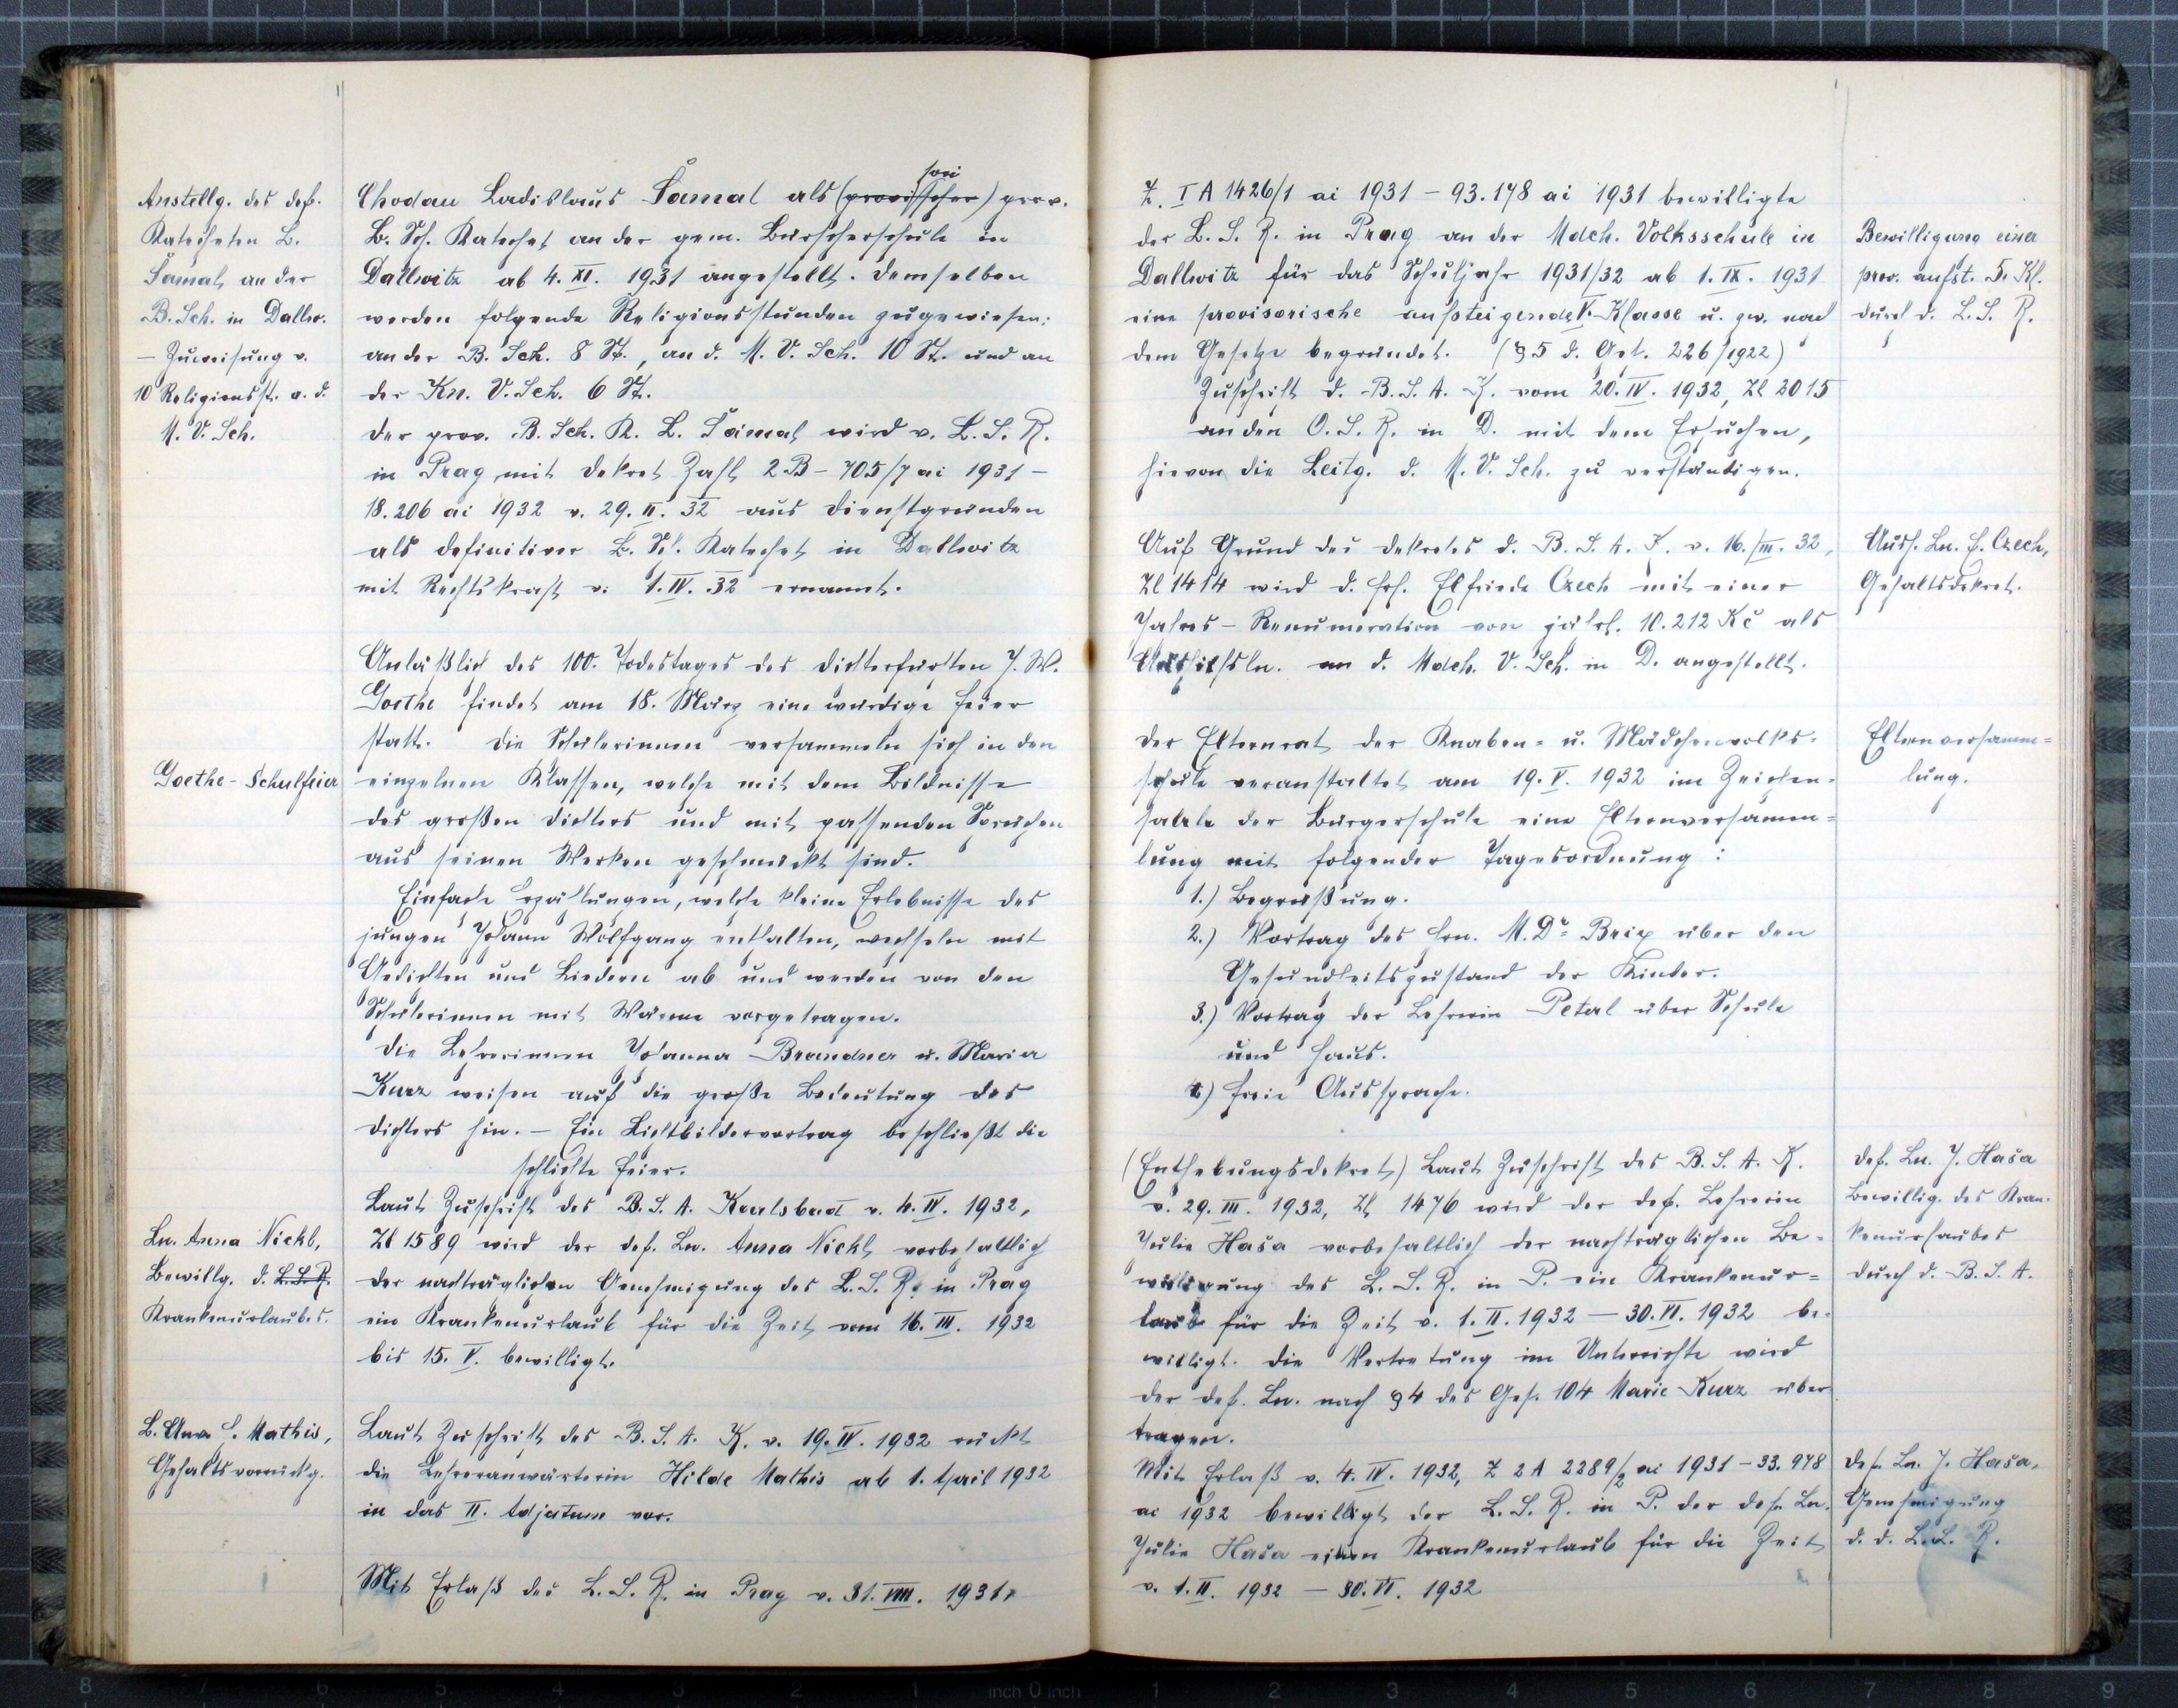 Anstellg. des def.
Katecheten L.
Šámal an der
B. Sch. in Dallw.
– Zuweisung v.
10 Religionsst. a. d.
M. V. Sch.
Chodau Ladislaus Šámal als (provisorischer) prov.
B. Sch. Katechet an der gem. Bürgerschule in
Dallwitz ab 4. XI. 1931 angestellt. Demselben
werden folgende Religionsstunden zugewiesen:
an der B. Sch. 8 St., an d. M. V. Sch. 10 St. und an
der Kn. V. Sch. 6 St.
Der prov. B. Sch. K. L. Šámal wird v. L. S. R.
in Prag mit Dekret Zahl 2 B – 705/7 ai 1931 –
18.206 ai 1932 v. 29. II. 32 aus Dienstgründen
als definitiver B. Sch. Katechet in Dallwitz
mit Rechtskraft v. 1. IV. 32 ernannt.
Anläßlich des 100. Todestages des Dichterfürsten J. W.
Goethe findet am 18. März eine würdige Feier
statt. Die Schülerinnen versammeln sich in den
Goethe-Schulfeier
einzelnen Klassen, welche mit dem Bildnisse
des großen Dichters und mit passenden Sprüchen
aus seinen Werken geschmückt sind.
Einfache Erzählungen, welche kleine Erlebnisse des
jungen Johann Wolfgang enthalten, wechseln mit
Gedichten und Liedern ab und werden von den
Schülerinnen mit Wärme vorgetragen.
Die Lehrerinnen Johanna Brandner u. Maria
Kurz weisen auf die große Bedeutung des
Dichters hin. – Ein Lichtbildervortrag beschließt die
schlichte Feier.
Ln. Anna Nickl,
Bewillg. d. L. S. R.
Krankenurlaubes.
Laut Zuschrift des B. S. A. Karlsbad v. 4. IV. 1932,
Zl 1589 wird der def. Ln. Anna Nickl vorbehaltlich
der nachträglichen Genehmigung des L. S. R. in Prag
ein Krankenurlaub für die Zeit vom 16. III. 1932
bis 15. V. bewilligt.
L. Anw. H. Mathis,
Gehaltsvorrückg.
Laut Zuschrift des B. S. A. K. v. 19. IV. 1932 rückt
die Lehreranwärterin Hilde Mathis ab 1. April 1932
in das II. Adjutum vor.
Mit Erlaß des L. S. R. in Prag v. 31. VIII. 1931,
Z. I A 1426/1 ai 1931 – 93.178 ai 1931 bewilligte
der L. S. R. in Prag an der Mdch. Volksschule in
Dallwitz für das Schuljahr 1931/32 ab 1. IX. 1931
eine provisorische aufsteigende V. Klasse u. zw. nach
dem Gesetze begründet. (§ 5 d. Gst. 226/1922)
Zuschrift d. B. S. A. K. vom 20. IV. 1932, Zl 2015
an den O. S. R. in D. mit dem Ersuchen,
hievon die Leitg. d. M. V. Sch. zu verständigen.
Bewilligung einer
prov. aufst. 5. Kl.
durch d. L. S. R.
Auf Grund des Dekretes d. B. S. A. K. v. 16./III. 32,
Zl 1414 wird d. Frl. Elfriede Czech mit einer
Jahres-Renumeration von jährl. 10.212 Kč als
Aushilfsln. an d. Mdch. V. Sch. in D. angestellt.
Aush. Ln. E. Czech,
Gehaltsdekret.
Der Elternrat der Knaben- u. Mädchenvolks-
schule veranstaltet am 19. V. 1932 im Zeichen-
saale der Bürgerschule eine Elternversamm-
lung mit folgender Tagesordnung:
Elternversamm=
lung.
1.) Begrüßung.
2.) Vortrag des Hrn. M. Dr. Brix über den
Gesundheitszustand der Kinder.
3.) Vortrag der Lehrerin Petal über Schule
und Haus.
4.) Freie Aussprache.
(Enthebungsdekret) Laut Zuschrift des B. S. A. K.
v. 29. III. 1932, Zl 1476 wird der def. Lehrerin
Julie Haša vorbehaltlich der nachträglichen Be-
willigung des L. S. R. in P. ein Krankenur=
laub für die Zeit v. 1. II. 1932 – 30. VI. 1932 be-
willigt. Die Vertretung im Unterrichte wird
der def. Ln. nach § 4 des Ges. 104 Marie Kurz über
tragen.
Def. Ln. J. Haša
Bewillig. des Kran-
kenurlaubes
durch d. B. S. A.
Mit Erlaß v. 4. IV. 1932, Z 2 A 2289/2 ai 1931 – 33.978
ai 1932 bewilligt der L. S. R. in P. der def. Ln.
Julie Haša einen Krankenurlaub für die Zeit
v. 1. II. 1932 – 30. VI. 1932
Def. Ln. J. Haša,
Genehmigung
d. d. L. S. R.
8 7 6 5 4 3 2 1 inch 0 inch 1 2 3 4 5 6 7 8 9